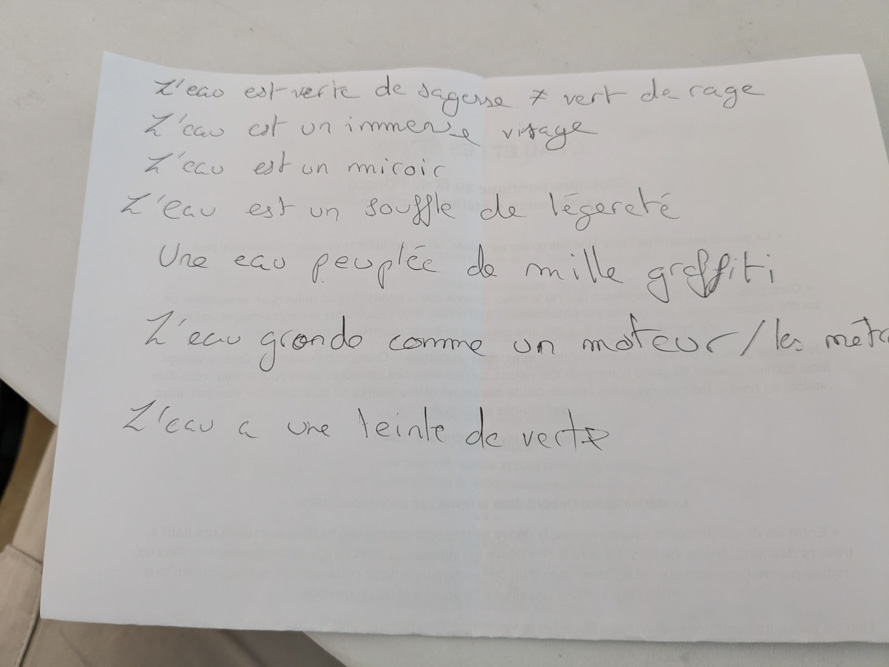 L'eau est verte de sagesse ≠ vert de rage
L'eau est un immense visage
L'eau est un miroir
L'eau est un souffle de légereté
Une eau peuplée de mille graffiti
L'eau gronde comme un moteur / les
L'eau a une teinte de verte